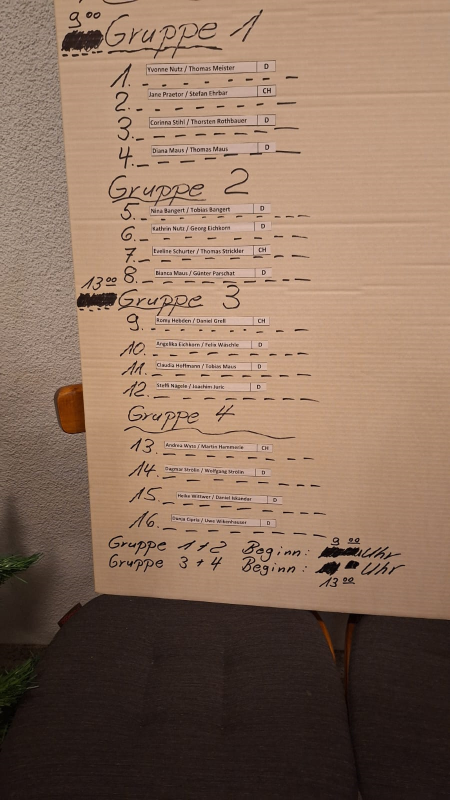 9 00
Gruppe 1
1. Yvonne Nutz / Thomas Meister D
2. Jane Praetor / Stefan Ehrbar CH
3. Corinna Stihl / Thorsten Rothbauer D
4. Diana Maus / Thomas Maus D
Gruppe 2
5. Nina Bangert / Tobias Bangert D
6. Kathrin Nutz / Georg Eichkorn D
7. Eveline Schurter / Thomas Strickler CH
8. Bianca Maus / Günter Parschat D
13 00
Gruppe 3
9. Romy Hebden / Daniel Groll CH
10. Angelika Eichkorn / Felix Wäschle D
11. Claudia Hoffmann / Tobias Maus D
12. Steffi Nägele / Joachim Juric D
Gruppe 4
13. Andrea Wyss / Martin Hammerle CH
14. Dagmar Strölin / Wolfgang Strölin D
15. Heike Wittwer / Daniel D
16. Dunja Cipris / Uwe Wikenhauser D
Gruppe 1+2 Beginn: 9 00 Uhr
Gruppe 3+4 Beginn: 13 00 Uhr